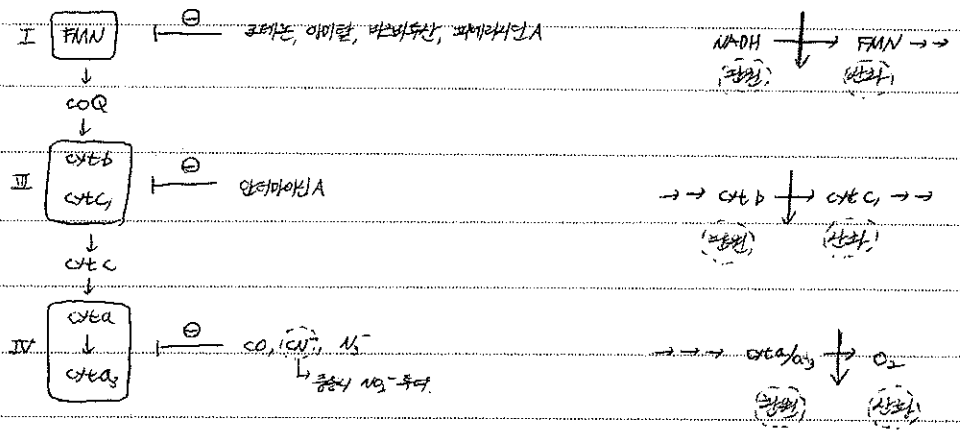 I FMN ⊖ 로테논, 아미탈, 바르비투산, 피에리시딘 A
NADH → FMN → →
환원 산화
↓
CoQ
↓
III cyt b ⊖ 안티마이신 A
cyt C₁
→ → cyt b → cyt C₁ → →
환원 산화
↓
cyt c
↓
IV cyt a ⊖ CO, CN⁻, N₃⁻
↓
cyt a₃
↳ 중독시 NO₂⁻ 투여.
→ → → cyt a/a₃ → O₂
환원 산화